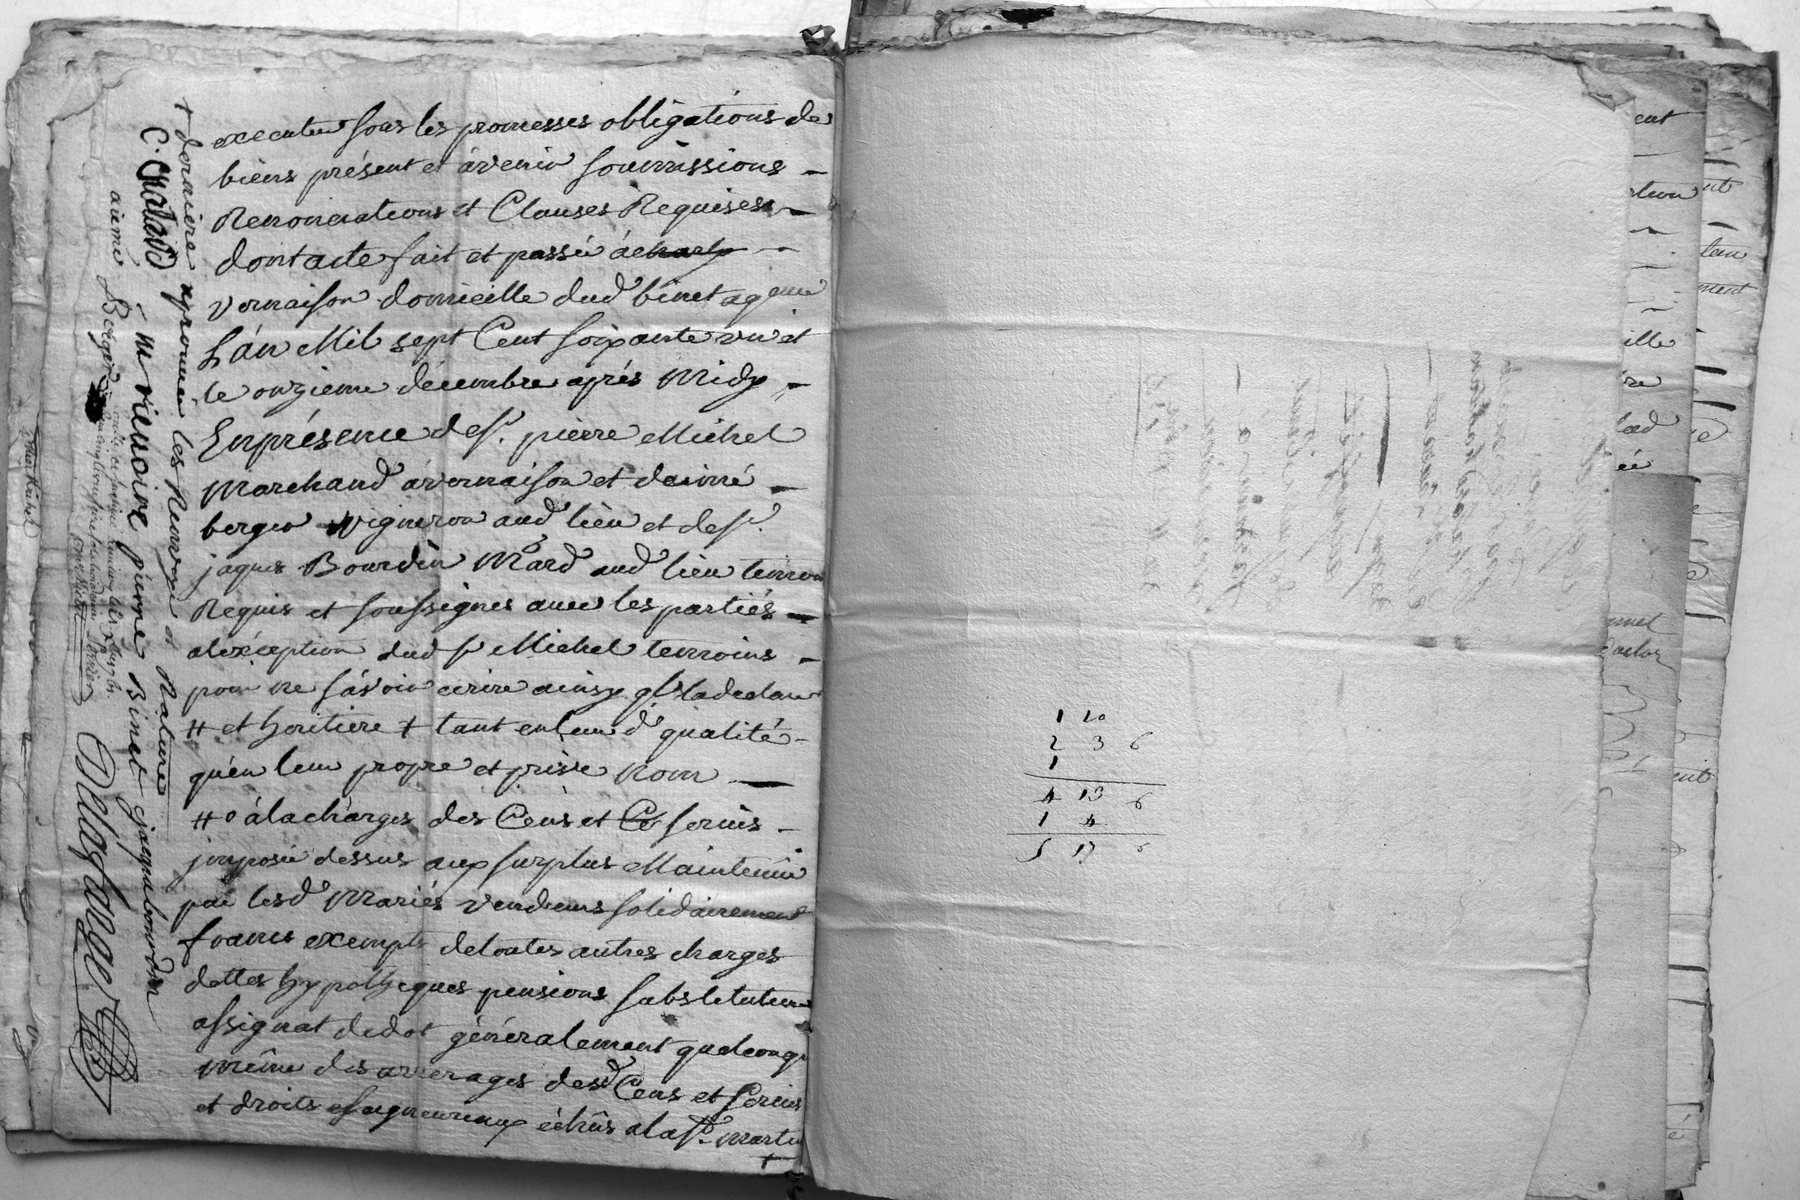 executer sous les promesses obligations de
biens présent et àvenir soumissions
Renonciations et Clauses Requises
dont acte fait et passé à
vernaison domicille dud binet
L'án Mil sept Cent soixante un et
le onzieme décembre après Midy
En présence de sr. pierre Michel
Marchand à vernaison et d'aimé
berger vigneron aud lieu et de sr.
jaques Bourdin Mard aud lieu temoins
Requis et soussignés avec les partiés
aléxéption dud sr Michel temoins
pour ne sávoir ecrire ainsy
# et heritiere + tant en leurd qualité
quen leur propre et privé nom
#o àla chárges des Cens et servis
imposée dessus aux surplus Maintenûe
par lesd Mariés vendeurs solidairement
francs exempts de toutes autres charges
dettes hypotheques pensions substitutions
assignat de dot généralement quelconq
même des arrerages desd Cens et servis
et droits seigneuriaux échûs a la st. martin
+ derniere approuvé les Renvoys et Rature
C. Chatard m rienoire pierre Binet jaque bourdin
aimé Berger
Delaflarge
1 10
2 3 6
1
4 13 6
1 4
5 17 6